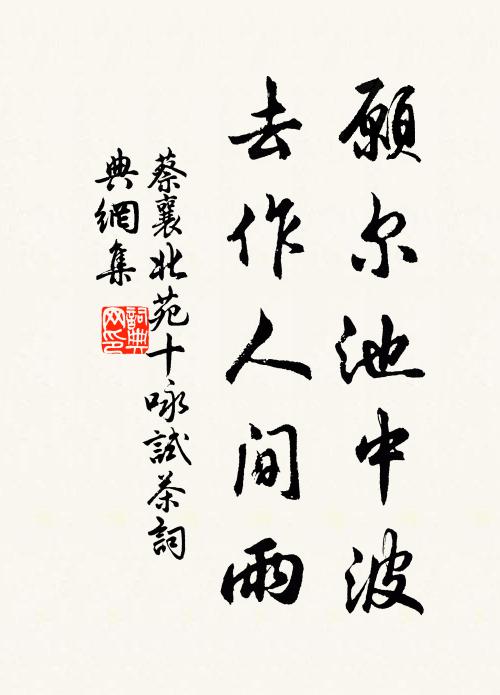 願尔池中波
去作人间雨
蔡襄北苑十咏試茶詞
典網集
詞典网印